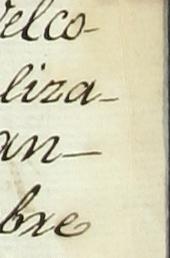 elco-
liza-
an-
bre